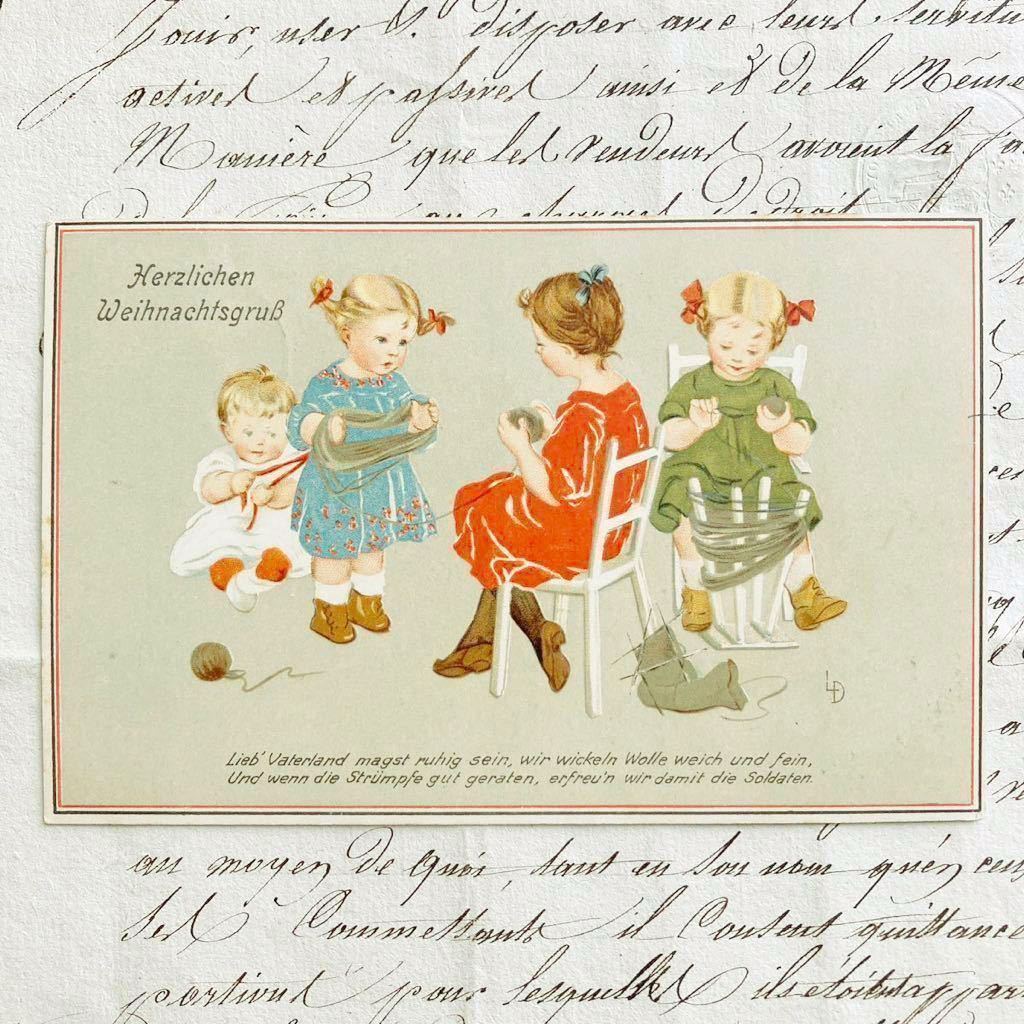 Jouir, user & disposer avec leurs servitu
actives et passives ainsi et de la Même
Manière que les vendeurs avoient la
Herzlichen
Weihnachtsgruß
LD
Lieb' Vaterland magst ruhig sein, wir wickeln Wolle weich und fein,
Und wenn die Strümpfe gut geraten, erfreu'n wir damit die Soldaten.
au moyen de quoi, tant en son nom
Commettants il Consent quittance
pour lesquelles